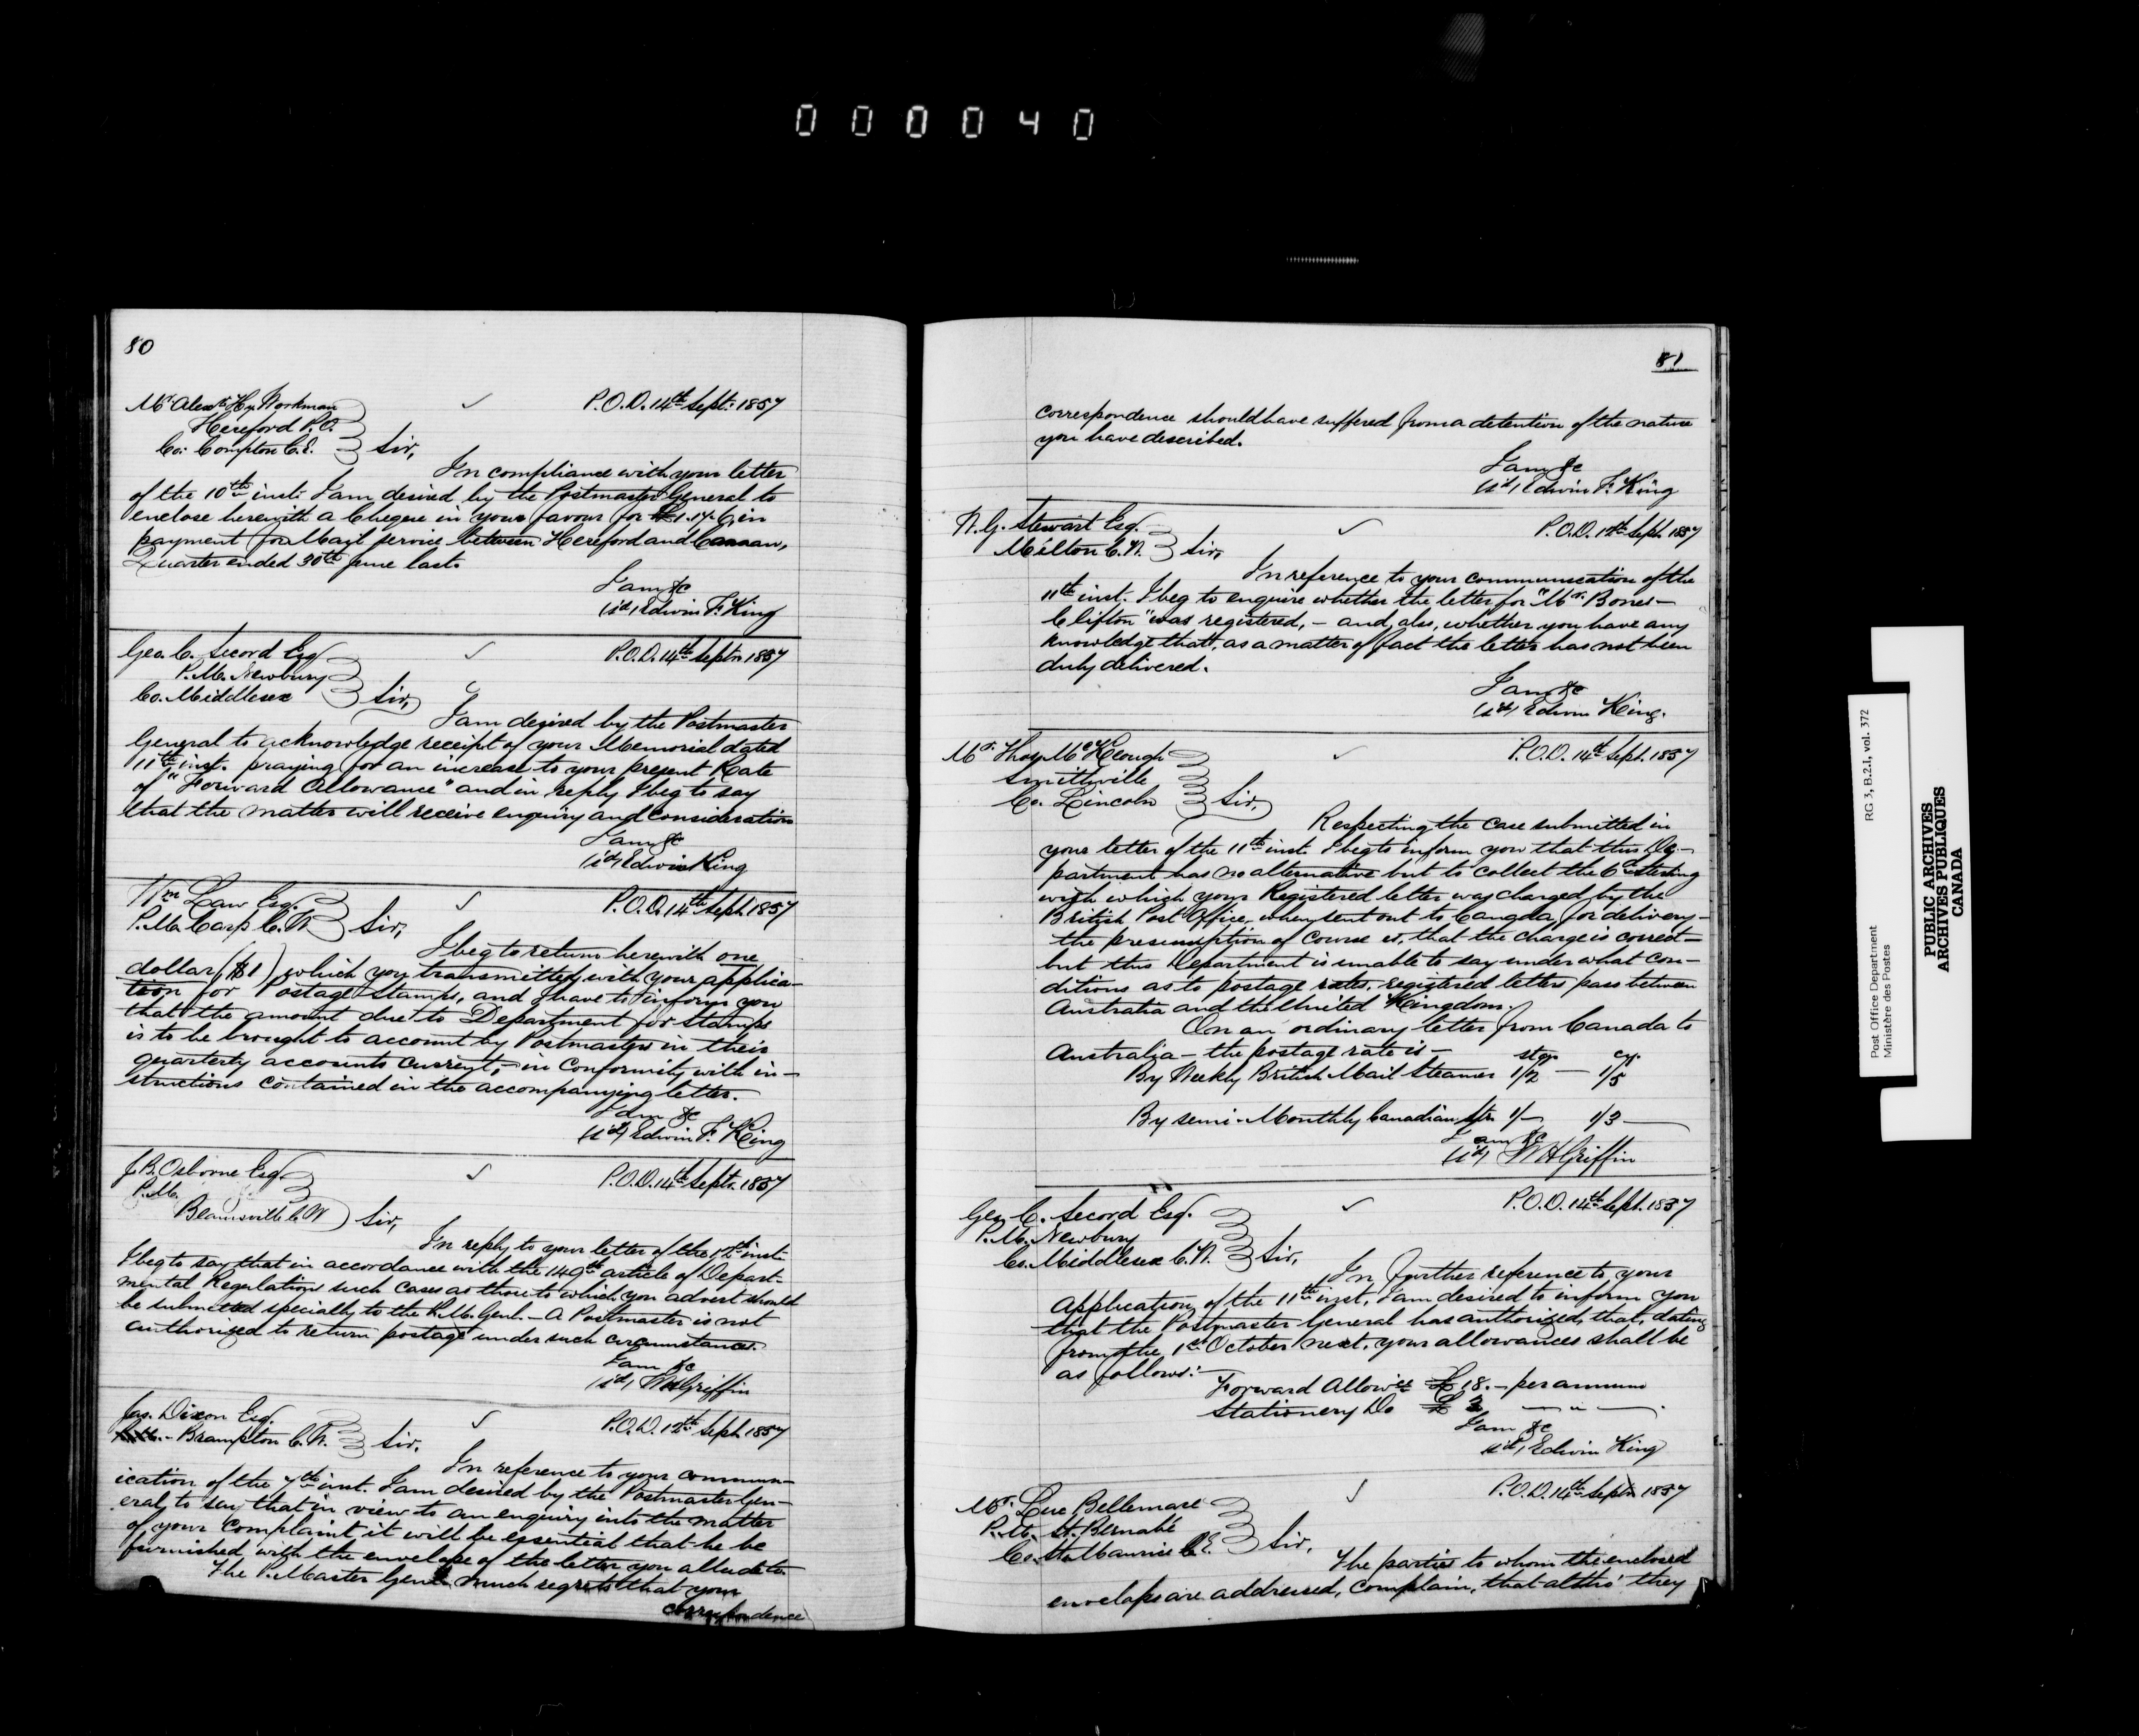 0 0 0 0 4 0
80
Mr. Alexr. Hy Workman
Hereford P.O.
Co: Compton C.E.
Sir,
P.O.D. 14th Sept: 1857
In compliance with your letter
of the 10th inst. I am desired by the Postmaster General to
enclose herewith a Cheque in your favour for £1.17.6, in
payment for Mail service between Hereford and Canaan,
Quarter ended 30th June last.
I am &c
(sd) Edwin F. King
Geo. C. Secord Esq
P.M. Newbury
Co. Middlesex
Sir,
P.O.D. 14th Septr. 1857
I am desired by the Postmaster
General to acknowledge receipt of your Memorial dated
11th inst. praying for an increase to your present Rate
of "Forward Allowance" and in reply I beg to say
that the matter will receive enquiry and consideration
I am &c
(sd) Edwin King
Wm Law Esq.
P.M. Carp C.W.
Sir,
P.O.D. 14th Sept. 1857
I beg to return herewith one
dollar ($1) which you transmitted with your applica-
tion for Postage Stamps, and I have to inform you
that the amount due to Department for Stamps
is to be brought to account by Postmasters in their
quarterly accounts current, in Conformity with in-
structions contained in the accompanying letter.
I am &c
(sd) Edwin F. King
J.B. Osborne Esq.
P.M.
Beamsville C.W
Sir,
P.O.D. 14th Septr. 1857
In reply to your letter of the 12th inst.
I beg to say that in accordance with the 149th article of Depart-
mental Regulations such Cases as those to which you advert should
be submitted specially to the P.M. Genl. - A Postmaster is not
authorized to return postage under such circumstances.
I am &c
(sd) W H Griffin
Jas. Dixon Esq.
Brampton C.W.
Sir,
P.O.D. 12th Sept 1857
In reference to your commun-
ication of the 7th inst. I am desired by the Postmaster Gen-
eral, to say that in view to an enquiry into the matter
of your Complaint it will be essential that he be
furnished with the envelope of the letter you allude to.
The P. Master Genl. much regrets that your
correspondence
81
correspondence should have suffered from a detention of the nature
you have described.
I am &c
(sd) Edwin F. King
N.G. Stewart Esq.
Milton C.W.
Sir,
P.O.D. 12th Sept. 1857
In reference to your communication of the
11th inst. I beg to enquire whether the letter for "Mr. Bones -
Clifton" was registered, - and, also, whether you have any
knowledge that, as a matter of fact the letter has not been
duly delivered.
I am &c
(sd) Edwin King.
Mr. Thos McKeough
Smithville
Co. Lincoln
Sir,
P.O.D. 14th Sept. 1857
Respecting the case submitted in
your letter of the 11th inst. I beg to inform you that this De-
partment has no alternative but to collect the 6d sterling
with which your Registered letter was charged by the
British Post Office, when sent out to Canada, for delivery -
the presumption of course is, that the charge is correct -
but this Department is unable to say under what Con-
ditions as to postage rates, registered letters pass between
Australia and the United Kingdom.
On an ordinary letter from Canada to
Australia - the postage rate is - stg. cy.
By Weekly British Mail Steamer 1/2 — 1/5
By semi-Monthly Canadian Str. 1/- 1/3 —
I am &c
(sd) W H Griffin
Geo. C. Secord Esq.
P.M. Newbury
Co. Middlesex C.W.
Sir,
P.O.D. 14th Sept. 1857
In further reference to your
Application of the 11th inst, I am desired to inform you
that the Postmaster General has authorized, that, dating
from the 1st October next, your allowances shall be
as follows:-
Forward Allowce £18. - per annum
Stationery Do £ 2 — " —
I am &c
(sd) Edwin King
Mr. Luc Bellemare
P.M. St. Bernabé
Co. St. Maurice C.E.
Sir,
P.O.D. 14th Septr 1857
The parties to whom the enclosed
envelopes are addressed, complain, that altho' they
Post Office Department
Ministère des Postes
RG 3, B.2.1, vol. 372
PUBLIC ARCHIVES
ARCHIVES PUBLIQUES
CANADA